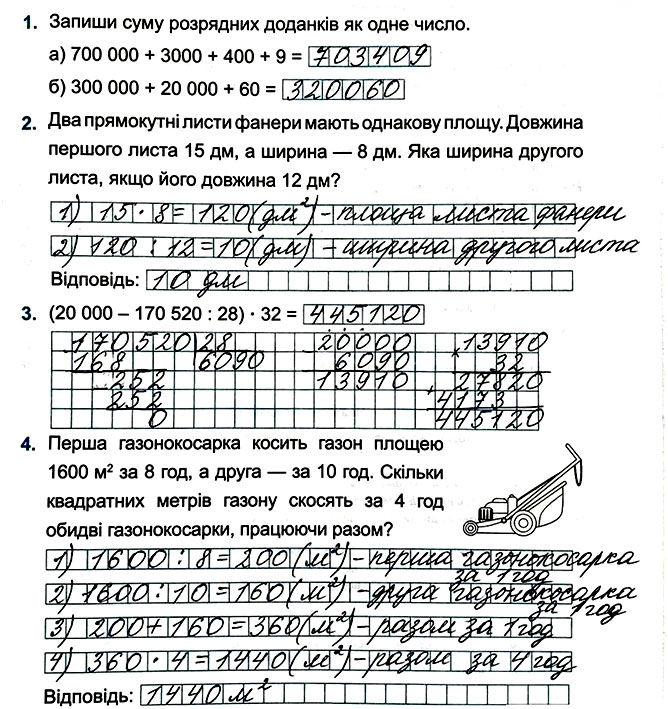 1. Запиши суму розрядних доданків як одне число.
а) 700 000 + 3000 + 400 + 9 = 703409
б) 300 000 + 20 000 + 60 = 320060
2. Два прямокутні листи фанери мають однакову площу. Довжина
першого листа 15 дм, а ширина — 8 дм. Яка ширина другого
листа, якщо його довжина 12 дм?
1) 15 · 8 = 120 (дм²) – площа листа фанери
2) 120 : 12 = 10 (дм) – ширина другого листа
Відповідь: 10 дм
3. (20 000 – 170 520 : 28) · 32 = 445120
170520 28 20000 13910
168 6090 6090 × 32
252 13910 27820
252 4173
0 445120
4. Перша газонокосарка косить газон площею
1600 м² за 8 год, а друга — за 10 год. Скільки
квадратних метрів газону скосять за 4 год
обидві газонокосарки, працюючи разом?
1) 1600 : 8 = 200 (м²) – перша газонокосарка
за 1 год
2) 1600 : 10 = 160 (м²) – друга газонокосарка
за 1 год
3) 200 + 160 = 360 (м²) – разом за 1 год
4) 360 · 4 = 1440 (м²) – разом за 4 год
Відповідь: 1440 м²